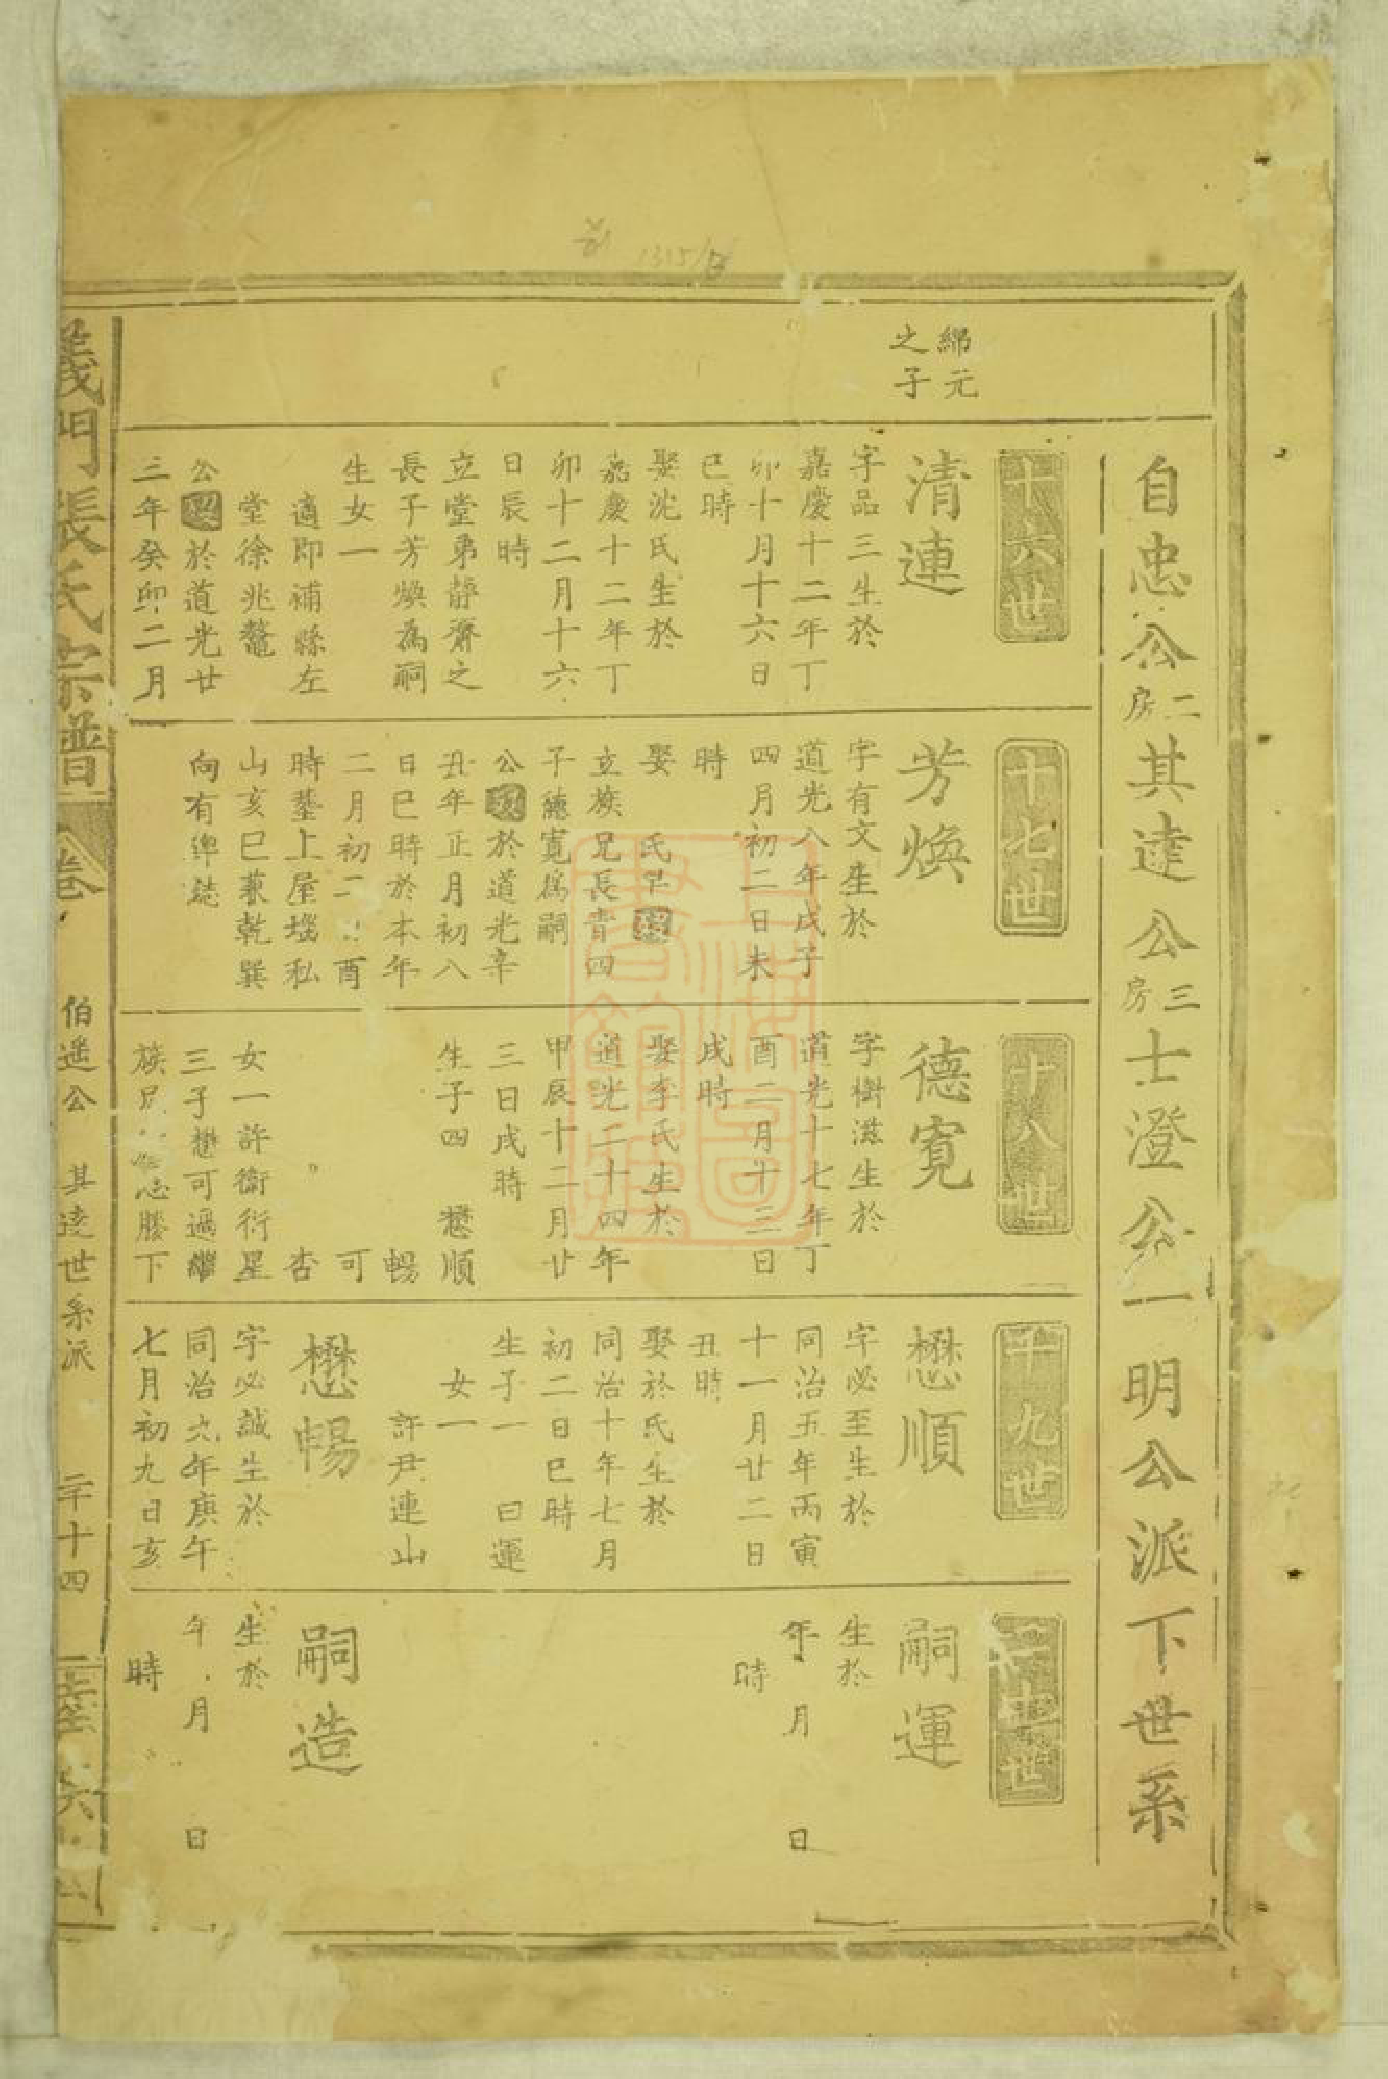 自忠公二房其達公三房士澄公一明公派下世系
綿元
之子
十六世
清連
字品三生於
嘉慶十二年丁
卯十月十六日
巳時
娶沈氏生於
嘉慶十二年丁
卯十二月十六
日辰時
立堂弟靜齋之
長子芳煥為嗣
生女一
適即補縣左
堂徐兆鼇
公歿於道光廿
三年癸卯二月
十七世
芳煥
字有文生於
道光八年戊子
四月初二日未
時
娶 氏早歿
立族兄長青四
子德寬為嗣
公歿於道光辛
丑年正月初八
日巳時於本年
二月初二 酉
時塟上屋墈私
山亥巳兼乾巽
向有碑誌
十八世
德寬
字樹滋生於
道光十七年丁
酉二月十三日
戌時
娶李氏生於
道光二十四年
甲辰十二月廿
三日戌時
生子四 懋順
暢
可
杏
女一許衛衍星
三子懋可過繼
族兄 心勝下
十九世
懋順
字必至生於
同治五年丙寅
十一月廿二日
丑時
娶於氏生於
同治十年七月
初二日巳時
生子一 曰運
女一
許尹連山
懋暢
字必誠生於
同治六年庚午
七月初九日亥
二十世
嗣運
生於
年 月 日
時
嗣造
生於
年 月 日
時
義門張氏宗譜
卷
伯遥公 其逵世系派
二十四
上海圖書館藏